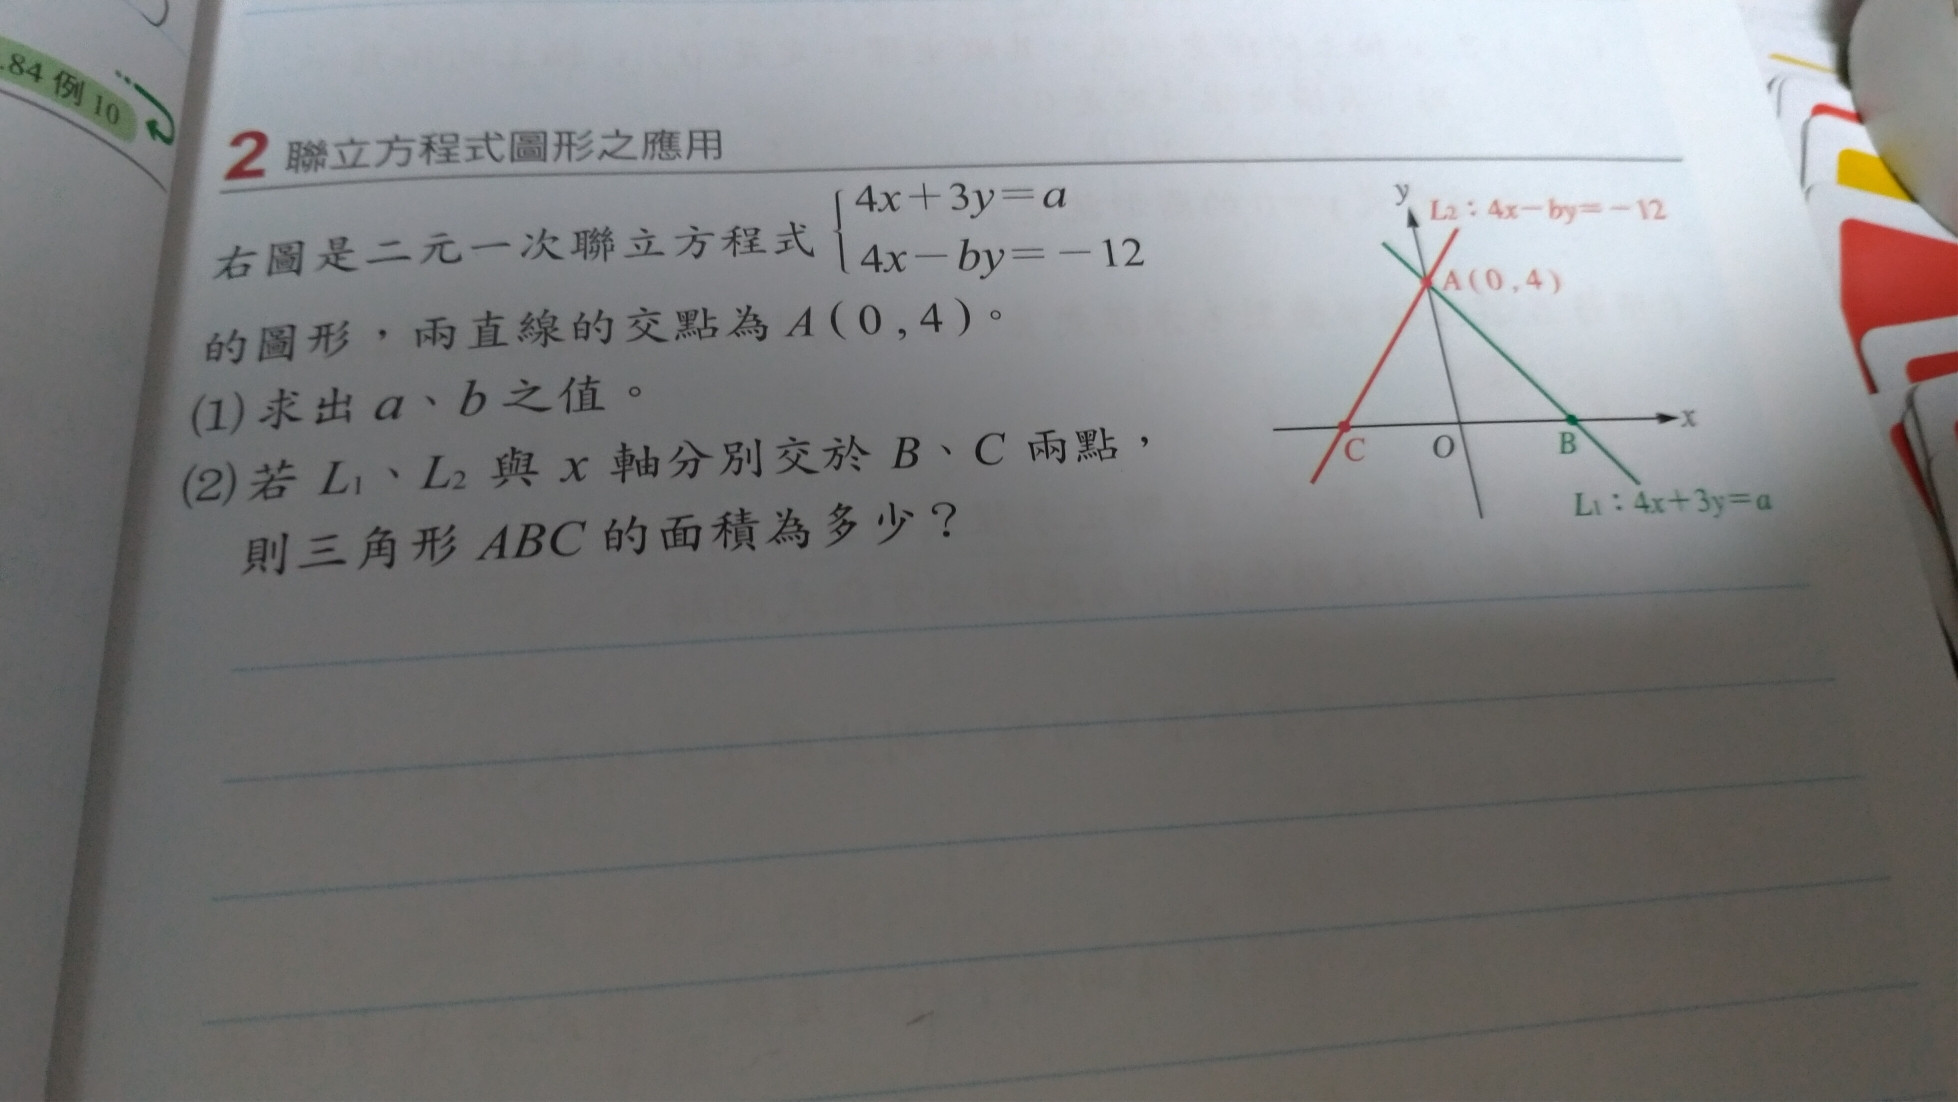 .84 例 10
2 聯立方程式圖形之應用
右圖是二元一次聯立方程式 { 4x+3y=a
4x-by=-12
的圖形，兩直線的交點為 A(0,4)。
(1)求出 a、b 之值。
(2)若 L1、L2 與 x 軸分別交於 B、C 兩點，
則三角形 ABC 的面積為多少？
y
L2：4x-by=-12
A(0,4)
x
C
O
B
L1：4x+3y=a